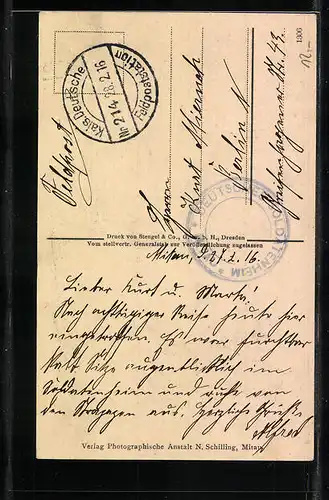 1306
Kais. Deutsche
Feldpoststation
Nr 214 28.2.16
Feldpost
Herrn
Kurt
Berlin
Nr. 43
DEUTSCHES SOLDATENHEIM
Druck von Stengel & Co., G. m. b. H., Dresden
Vom stellvertr. Generalstab zur Veröffentlichung zugelassen
Mitau, 27.2.16.
Lieber Kurt u. Martha!
Nach achttägiger Reise heute hier
eingetroffen. Es war furchtbar
kalt. Sitze augenblicklich im
Soldatenheim und ruhe von
den Strapazen aus. Herzliche Grüße
Alfred
Verlag Photographische Anstalt N. Schilling, Mitau